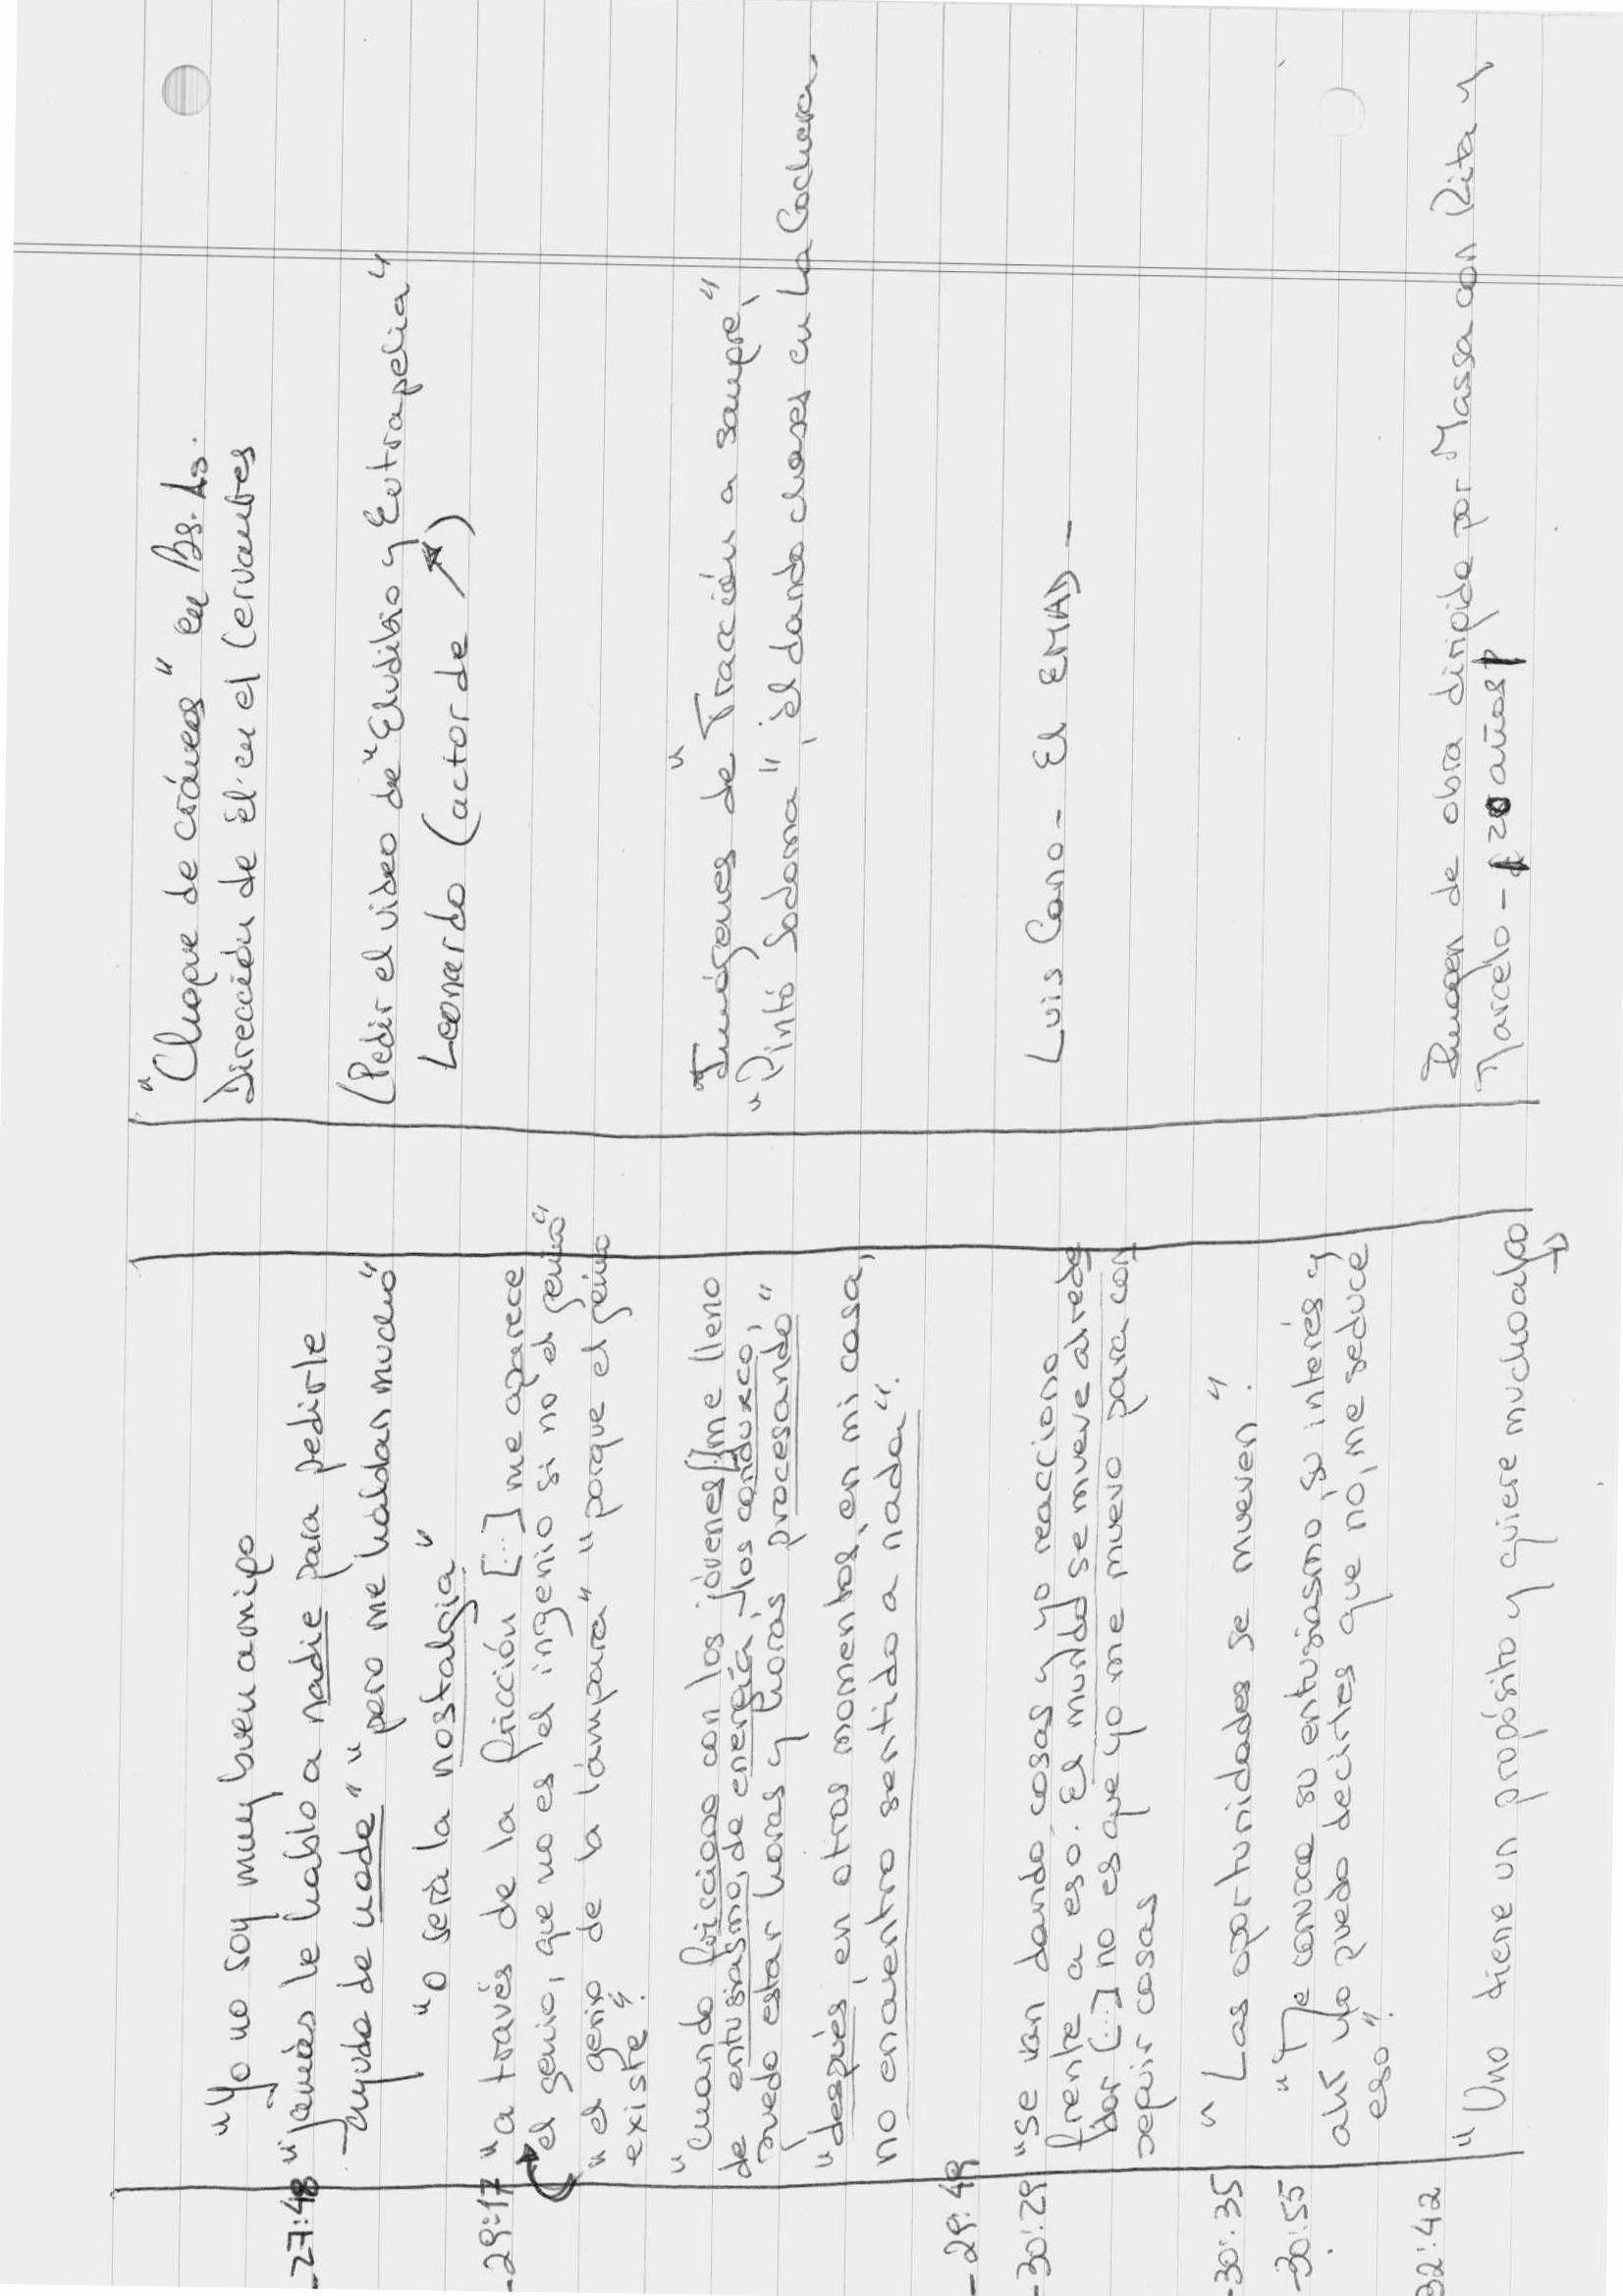 "Yo no soy muy buen amigo
-27:48 "jamás le hablo a nadie para pedirle
ayuda de nada" "pero me hablan mucho"
"o será la nostalgia"
-29:17 "a través de la fricción [...] me aparece
el genio, que no es el ingenio si no el genio"
"el genio de la lámpara" "porque el genio
existe".
"cuando fricciono con los jóvenes [...] me lleno
de entusiasmo, de energía, los conduzco,
puedo estar horas y horas procesando"
"después, en otros momentos, en mi casa,
no encuentro sentido a nada".
-29:49
-30:29 "se van dando cosas y yo reacciono
frente a eso. El mundo se mueve alrede
dor [...] no es que yo me muevo para con
seguir cosas
-30:35 "Las oportunidades se mueven".
-30:55 "Me convoca su entusiasmo, su interés y
ahí no puedo decirles que no, me seduce
eso".
32:42 "Uno tiene un propósito y quiere mucho algo
"Choque de cráneos" en Bs. As.
Dirección de él en el Cervantes
(Pedir el video de "Eludibio y Eutrapelia"
Leonardo (actor de ↗)
Imágenes de "Tracción a sangre",
"Pintó Sodoma", él dando clases en La Cochera
Luis Cano - El EMAD -
Imagen de obra dirigida por Massa con Rita y
Marcelo - 20 años